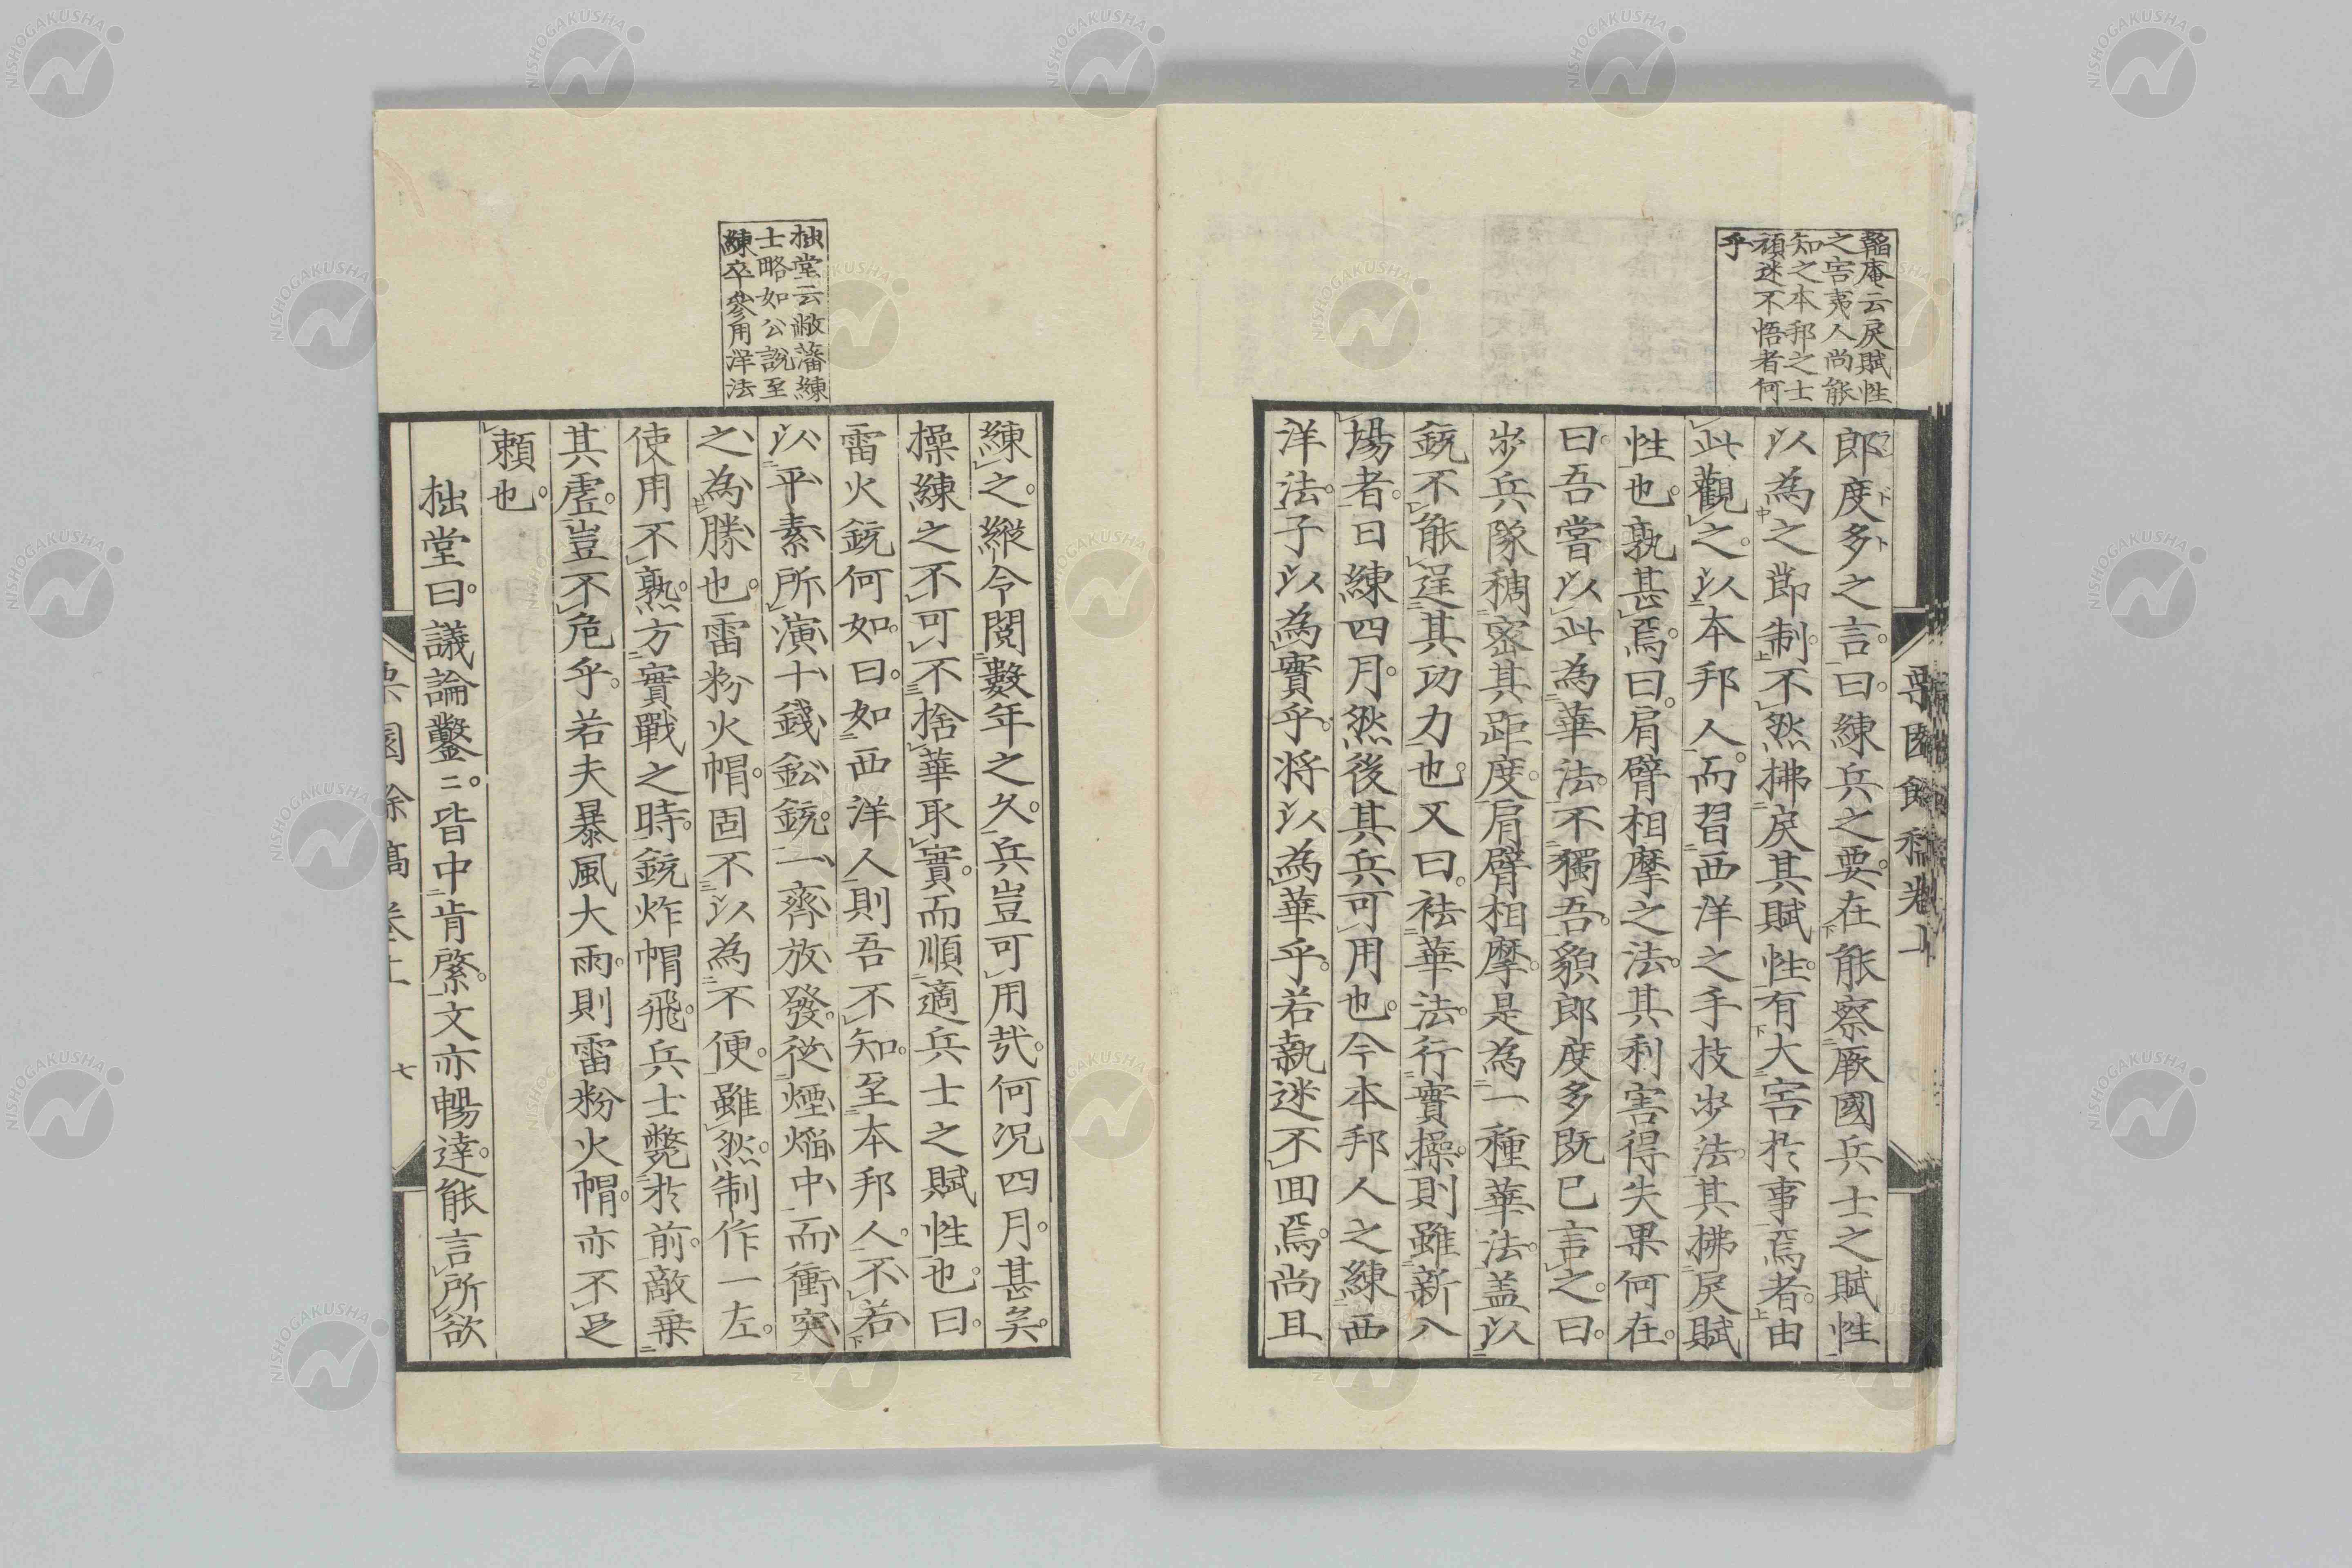 韜庵云戻賦性
之害夷人尚能
知之本邦之士
頑迷不悟者何
乎
郎度多之言。曰。練兵之要。在能察厥國兵士之賦性
以為之節制。不然拂戾其賦性。有大害於事焉者。由
此觀之。以本邦人。而習西洋之手技步法。其拂戾賦
性也。孰甚焉。曰。肩臂相摩之法。其利害得失果何在。
曰。吾嘗以此為華法。不獨吾。貌郎度多既已言之。曰。
步兵隊稠密其距度。肩臂相摩。是為一種華法。蓋以
銃不能逞其功力也。又曰。祛華法。行實操。則雖新入
場者。曰練四月。然後其兵可用也。今本邦人之練西
洋法。子以為實乎。將以為華乎。若執迷不回焉。尚且
拙堂云敝藩練
士略如公說至
練卒參用洋法
練之。縱令閱數年之久。兵豈可用哉。何況四月。甚矣。
操練之不可不捨華取實。而順適兵士之賦性也。曰。
雷火銃何如。曰。如西洋人則吾不知。至本邦人。不若
以平素所演十錢鉛銃。一齊放發。從煙焔中而衝突
之為勝也。雷粉火帽。固不以為不便。雖然制作一左。
使用不熟。方實戰之時。銃炸帽飛。兵士斃於前。敵乘
其虛。豈不危乎。若夫暴風大雨。則雷粉火帽。亦不足
賴也。
拙堂曰。議論鑿〻。皆中肯綮。文亦暢達。能言所欲
栗園餘稿卷上
七